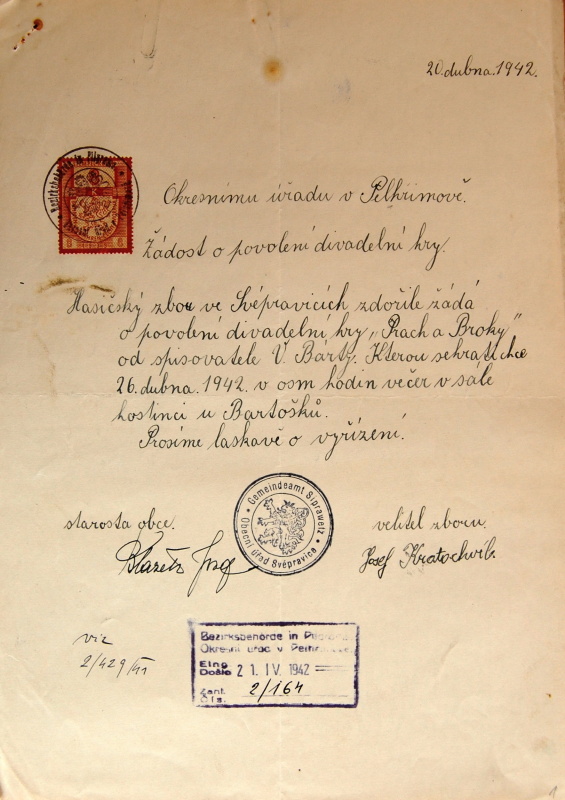 20. dubna. 1942.
Okresnímu úřadu v Pelhřimově.
6 K 6
Žádost o povolení divadelní hry.
Hasičský zbor ve Svépravicích zdořile žádá
o povolení divadelní hry „Prach a Broky"
od spisovatele V. Bárty. Kterou sehráti chce
26. dubna. 1942. v osm hodin večer v sále
hostinci u Bartošků.
Prosíme laskavě o vyřízení.
Gemeindeamt Siprawetz
Obecní úřad Svépravice
starosta obce.
velitel zboru.
Josef Kratochvíl.
viz
2/429/41
Bezirksbehörde in
Okresní úřad v
Eing.
Došlo 21. IV. 1942
Zahl
Čís. 2/164
1